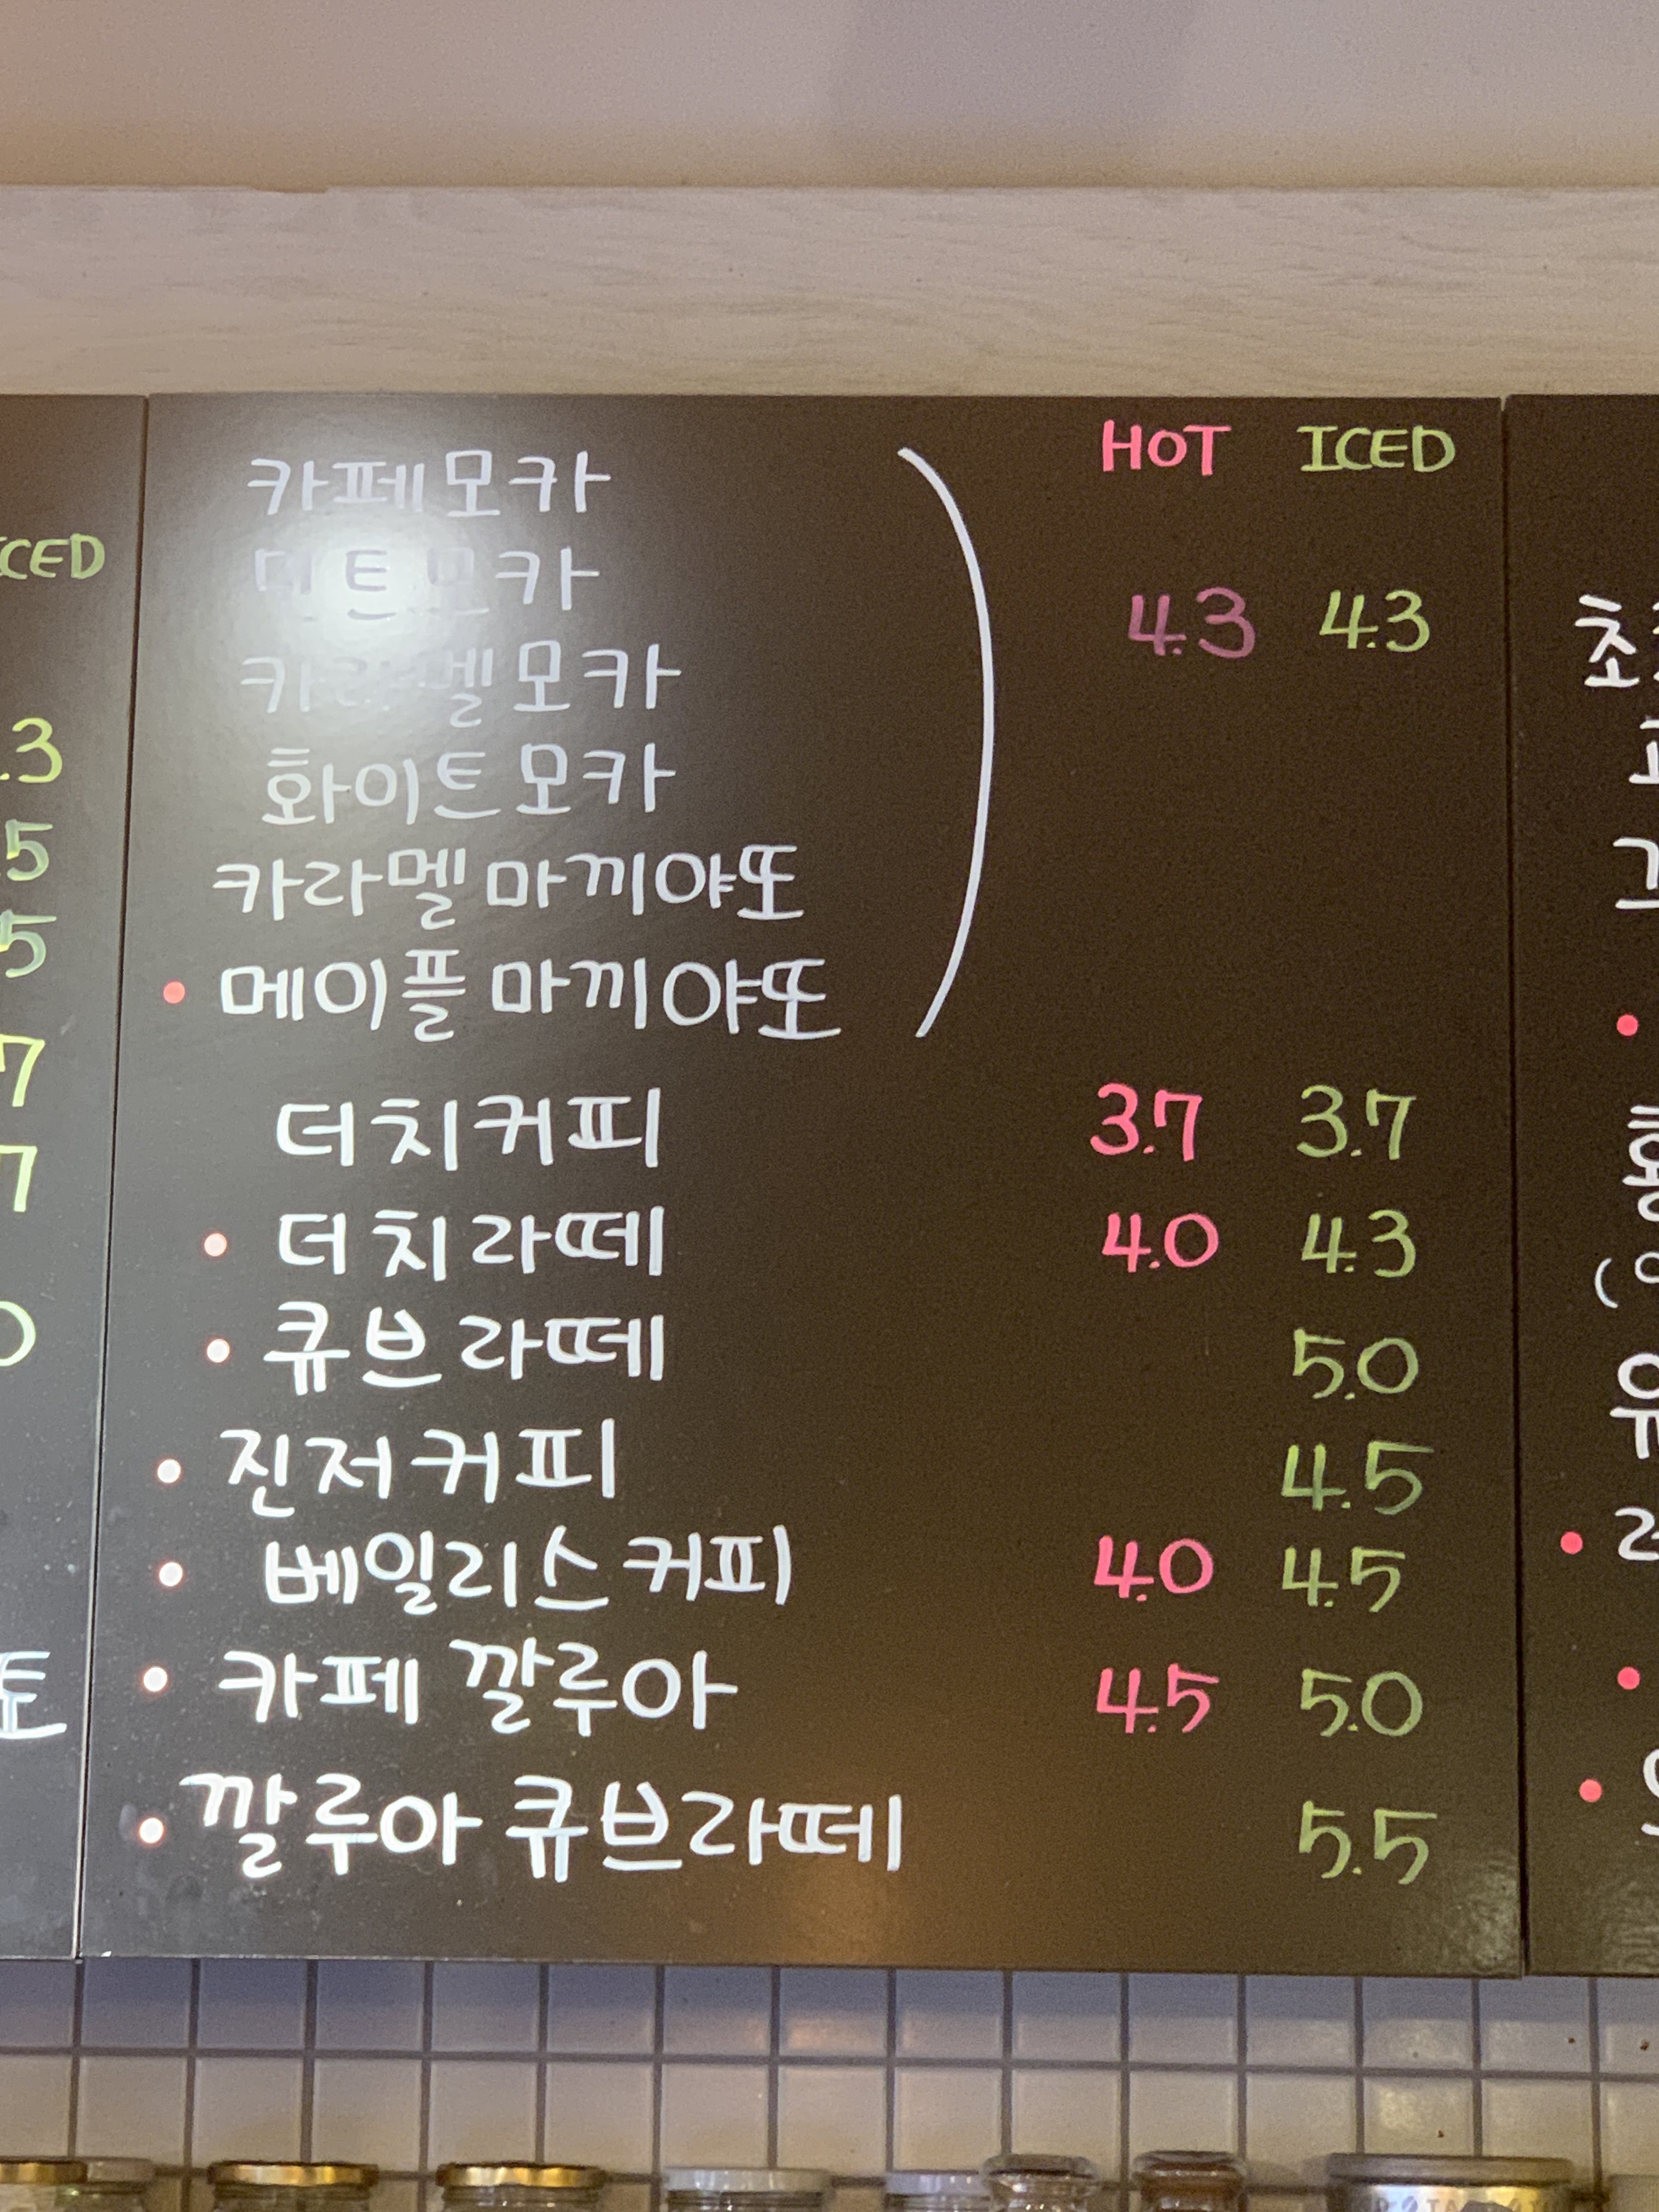 HOT ICED
카페모카
민트모카
카라멜모카
화이트모카
카라멜 마끼야또
메이플 마끼야또
4.3 4.3
더치커피 3.7 3.7
더치라떼 4.0 4.3
큐브라떼 5.0
진저커피 4.5
베일리스커피 4.0 4.5
카페 깔루아 4.5 5.0
깔루아 큐브라떼 5.5